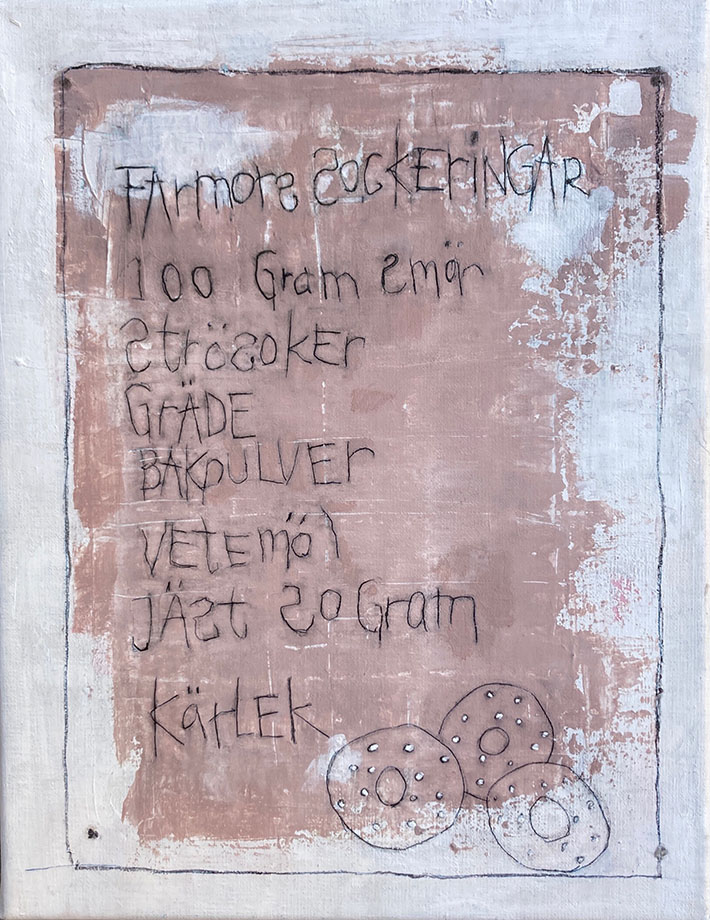 FArmors SOCKEriNGAr
100 Gram Smär
StröSOKEr
GräDE
BAKpULVEr
VEtEmöl
JÄSt 50 Gram
KärLEK